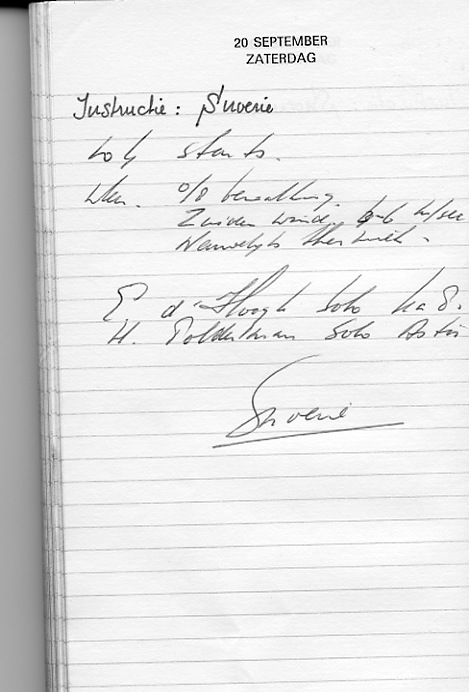 20 SEPTEMBER
ZATERDAG
Instructie: Snoerie
starts.
% bewolking.
Zuiden wind, 4-6 m/sec
Nauwelijks thermiek.
E d'Hooghe Solo Ka 8.
H. Polderman Solo Astir
Snoerie